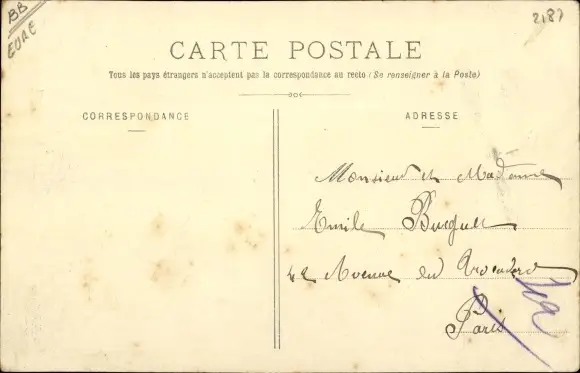 BB
EURE
2187
CARTE POSTALE
Tous les pays étrangers n'acceptent pas la correspondance au recto (Se renseigner à la Poste)
CORRESPONDANCE
ADRESSE
Monsieur et Madame
Emile
42 Avenue du Trocadero
Paris